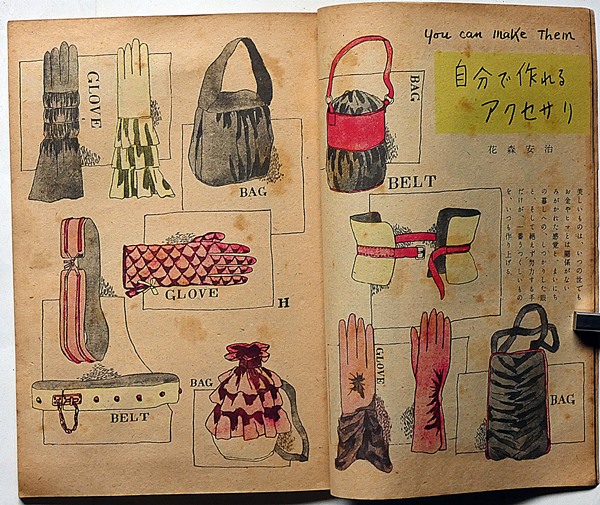 You can make Them
自分で作れる
アクセサリ
花森安治
美しいものは、いつの世でも
お金やヒマとは関係がない
みがかれた感覚と、まいにち
の暮しへの、しっかりした眼
と、そして絶えず努力する手
だけが、一番うつくしいもの
を、いつも作り上げる
BAG
BELT
GLOVE
BAG
GLOVE
BAG
GLOVE
H
BELT
BAG